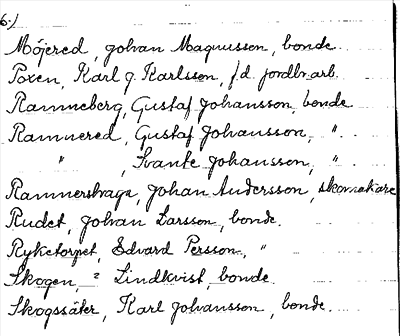 6.)
Möjered, Johan Magnusson, bonde.
Poxen, Karl J. Karlsson, f.d. jordbr.arb.
Ramneberg, Gustaf Johansson, bonde
Ramnered, Gustaf Johansson, "
" , Svante Johansson, "
Ramnershaga, Johan Andersson, skomakare
Rudet, Johan Larsson, bonde.
Ryketorpet, Edvard Persson, "
Skogen, ? Lindkvist, bonde.
Skogssäter, Karl Johansson, bonde.